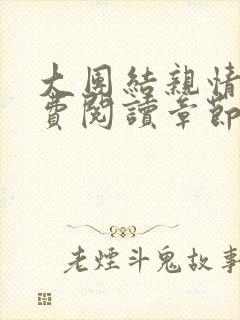 大團結親情
費閱讀章節
老煙斗鬼故事